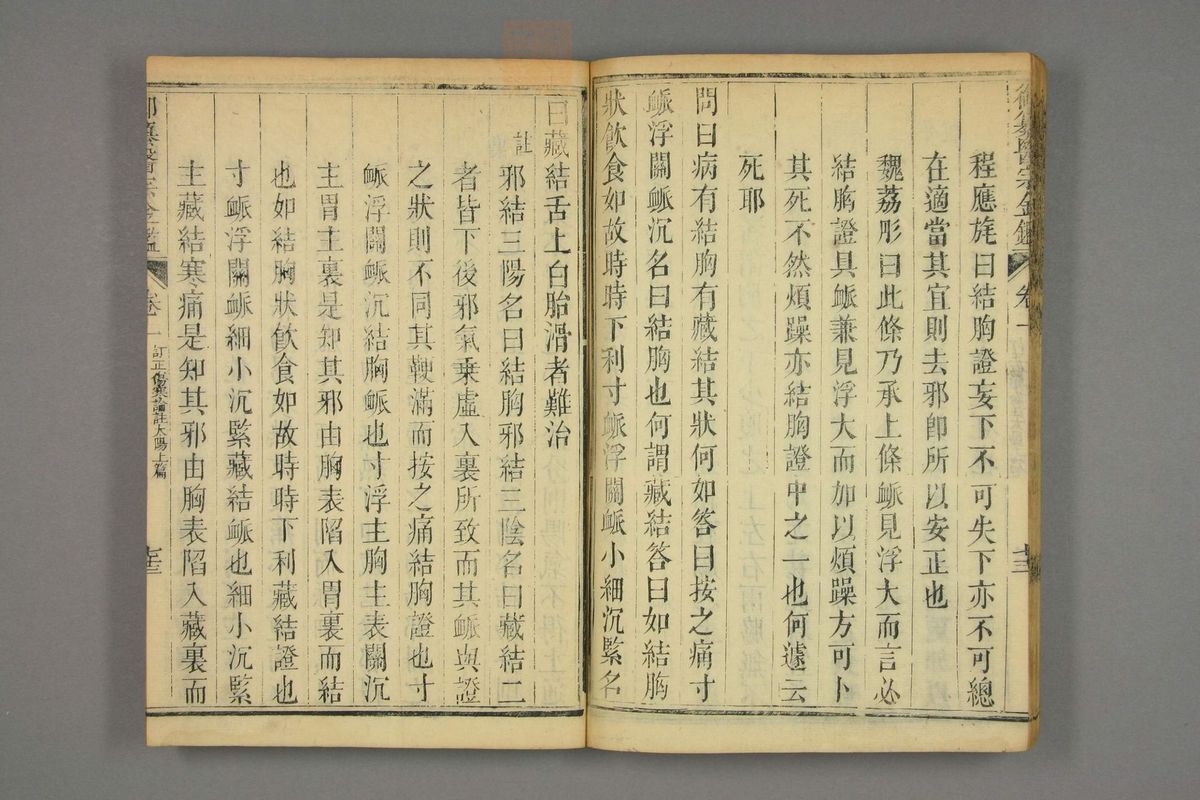 程應旄曰結胸證妄下不可失下亦不可總
在適當其宜則去邪卽所以安正也
魏荔彤曰此條乃承上條衇見浮大而言必
結胸證具衇兼見浮大而加以煩躁方可卜
其死不然煩躁亦結胸證中之一也何遽云
死耶
問曰病有結胸有藏結其狀何如答曰按之痛寸
衇浮關衇沉名曰結胸也何謂藏結答曰如結胸
狀飮食如故時時下利寸衇浮關衇小細沉緊名
曰藏結舌上白胎滑者難治
註
邪結三陽名曰結胸邪結三陰名曰藏結二
者皆下後邪氣乗虛入裏所致而其衇與證
之狀則不同其鞕滿而按之痛結胸證也寸
衇浮關衇沉結胸衇也寸浮主胸主表關沉
主胃主裏是知其邪由胸表陷入胃裏而結
也如結胸狀飮食如故時時下利藏結證也
寸衇浮關衇細小沉緊藏結衇也細小沉緊
主藏結寒痛是知其邪由胸表陷入藏裏而
御纂醫宗金鑑
卷一
訂正傷寒論註太陽上篇